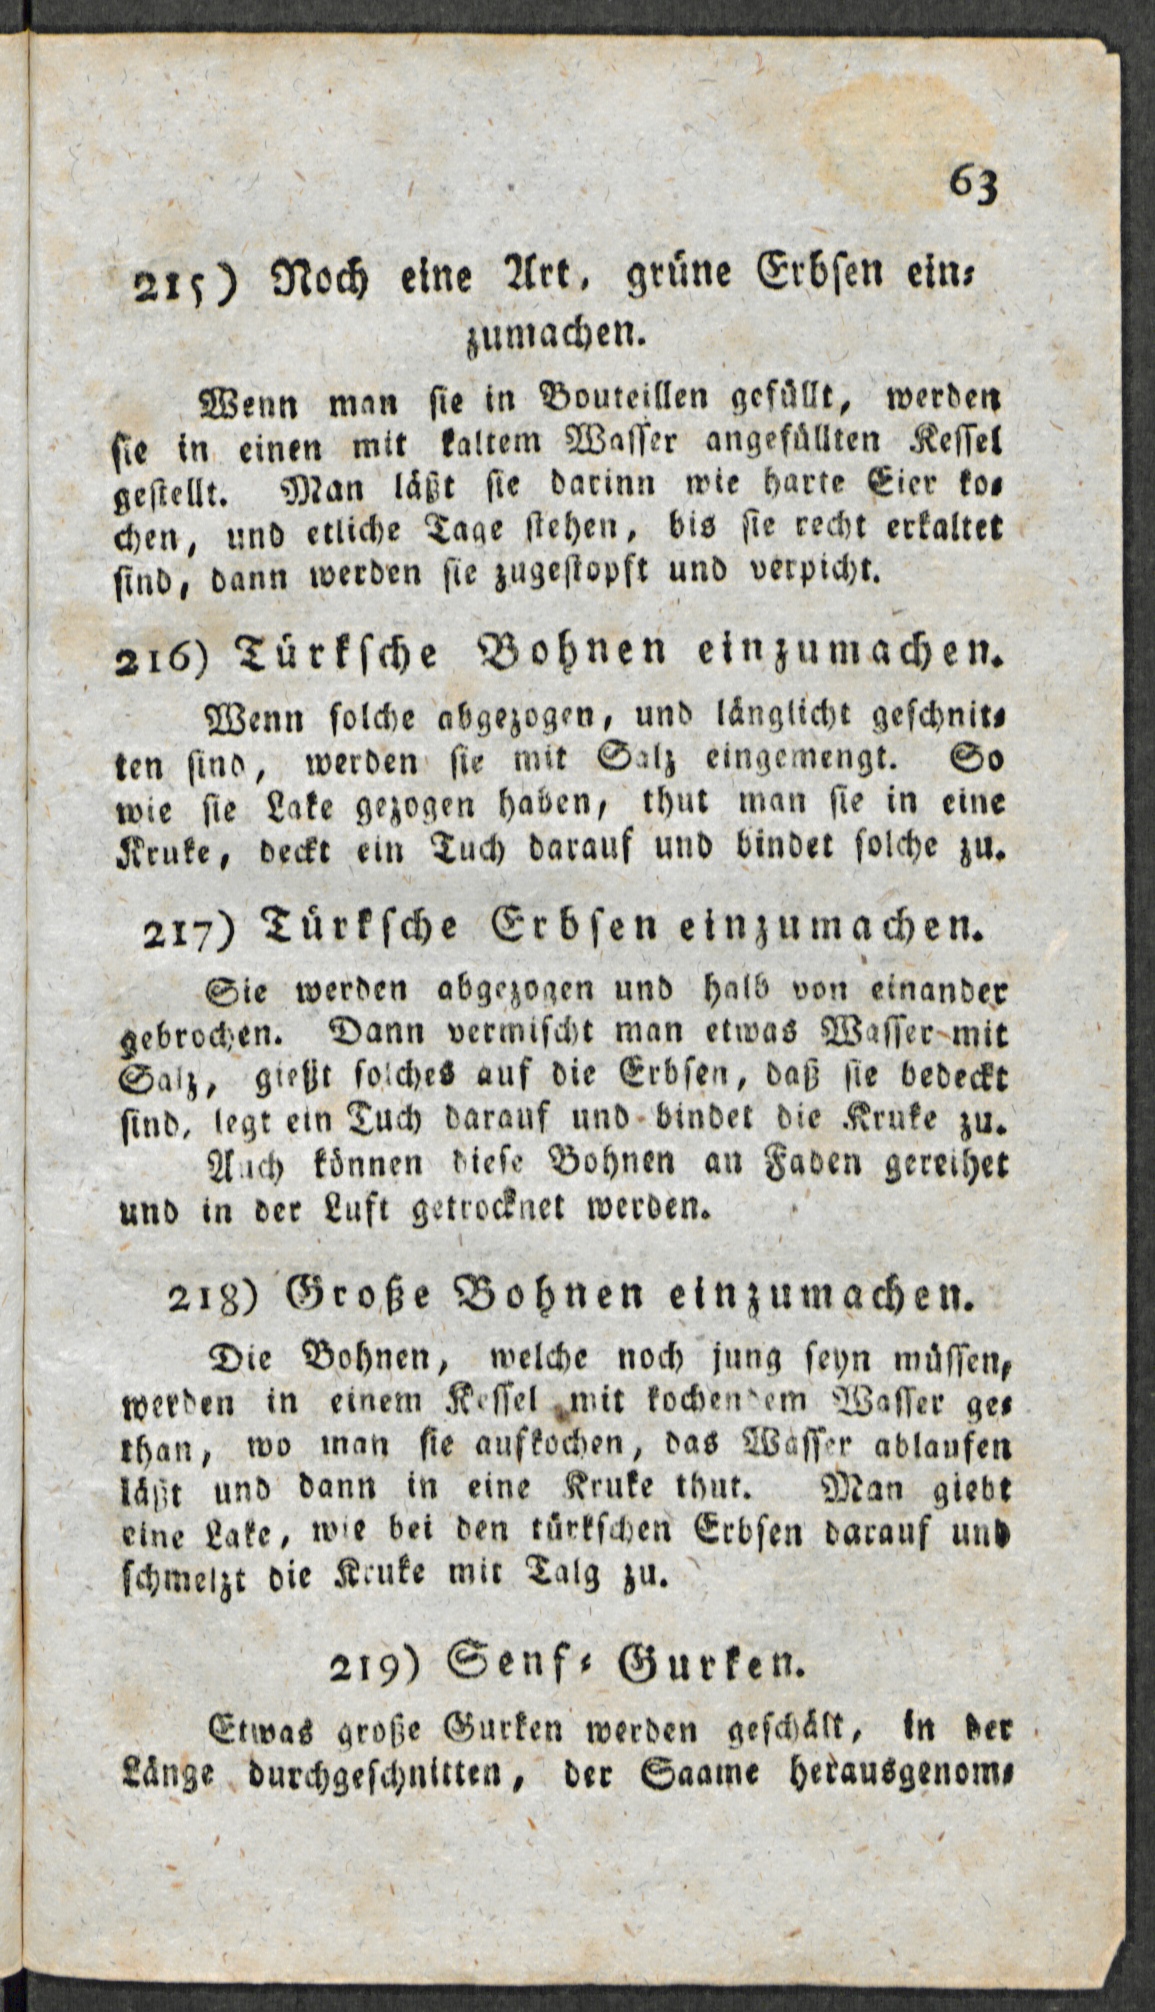 63
215) Noch eine Art, grüne Erbsen ein-
zumachen.
Wenn man sie in Bouteillen gefüllt, werden
sie in einen mit kaltem Wasser angefüllten Kessel
gestellt. Man läßt sie darinn wie harte Eier ko-
chen, und etliche Tage stehen, bis sie recht erkaltet
sind, dann werden sie zugestopft und verpicht.
216) Türksche Bohnen einzumachen.
Wenn solche abgezogen, und länglicht geschnit-
ten sind, werden sie mit Salz eingemengt. So
wie sie Lake gezogen haben, thut man sie in eine
Kruke, deckt ein Tuch darauf und bindet solche zu.
217) Türksche Erbsen einzumachen.
Sie werden abgezogen und halb von einander
gebrochen. Dann vermischt man etwas Wasser mit
Salz, gießt solches auf die Erbsen, daß sie bedeckt
sind, legt ein Tuch darauf und bindet die Kruke zu.
Auch können diese Bohnen an Faden gereihet
und in der Luft getrocknet werden.
218) Große Bohnen einzumachen.
Die Bohnen, welche noch jung seyn müssen,
werden in einem Kessel mit kochendem Wasser ge-
than, wo man sie aufkochen, das Wasser ablaufen
läßt und dann in eine Kruke thut. Man giebt
eine Lake, wie bei den türkschen Erbsen darauf und
schmelzt die Kruke mit Talg zu.
219) Senf-Gurken.
Etwas große Gurken werden geschält, in der
Länge durchgeschnitten, der Saame herausgenom-